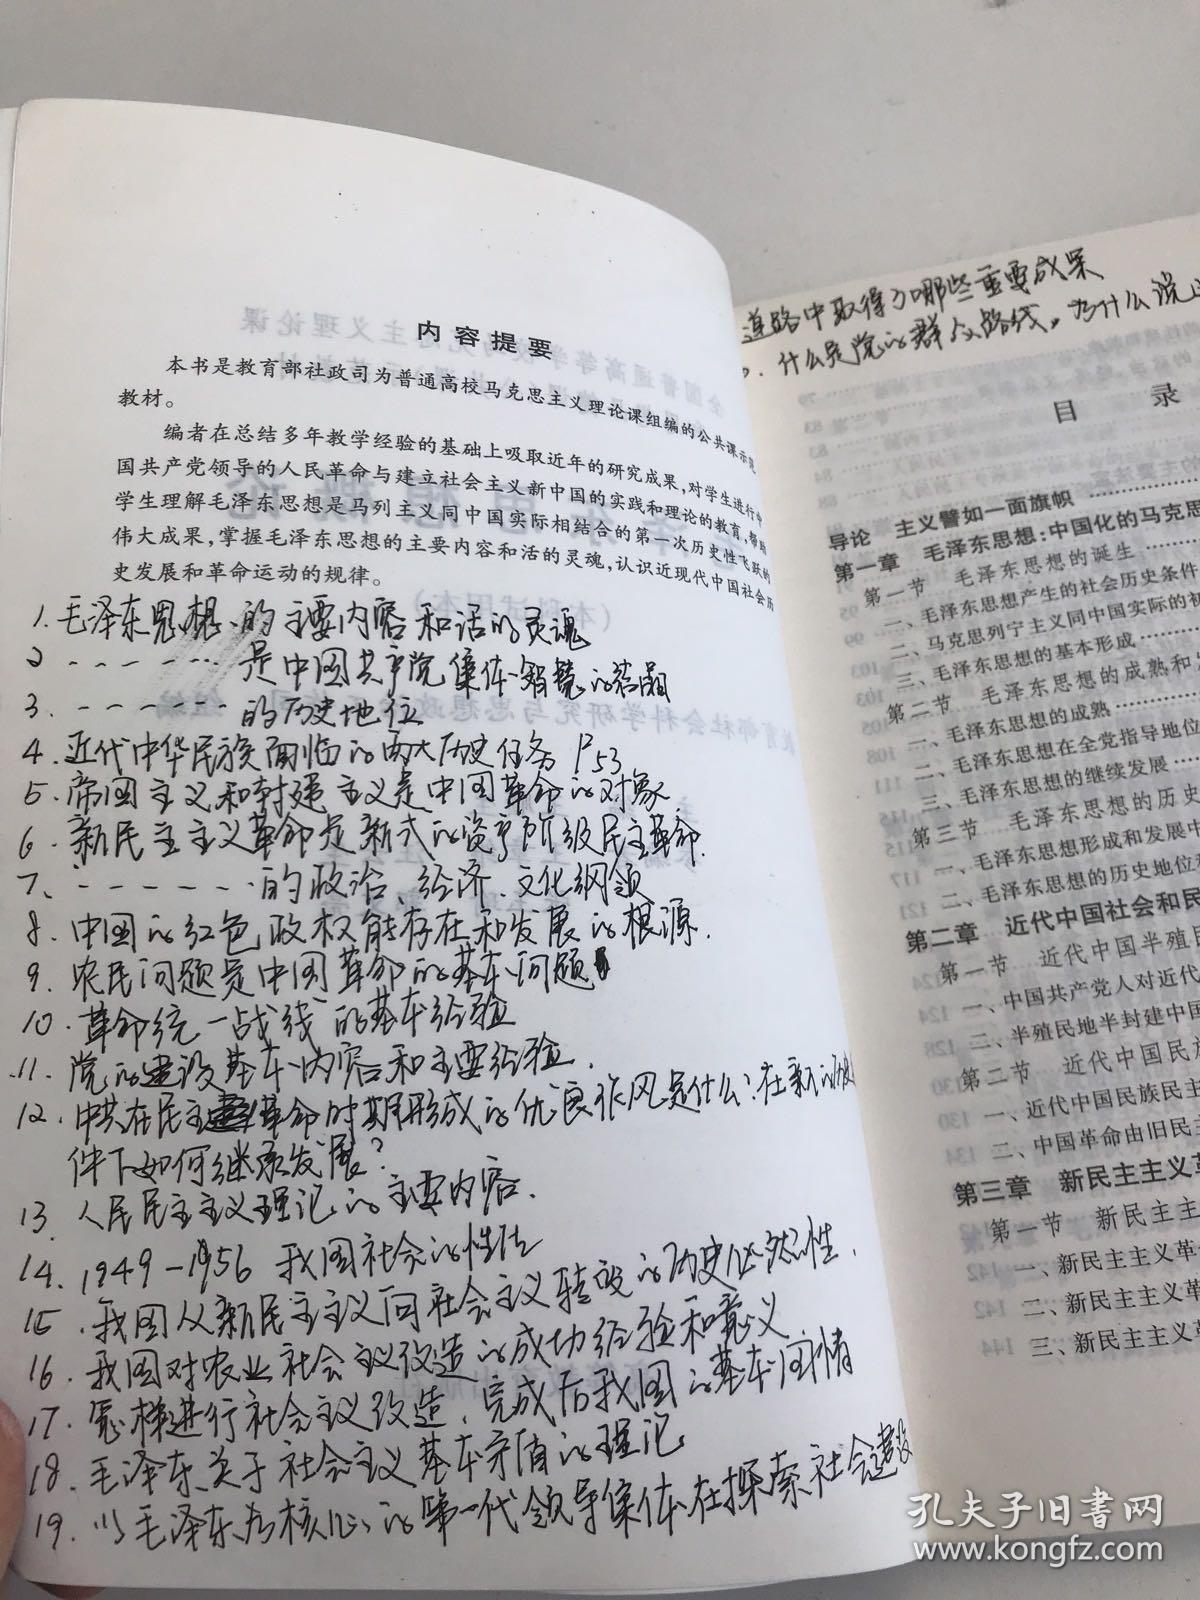 内容提要
本书是教育部社政司为普通高校马克思主义理论课组编的公共课示范
教材。
编者在总结多年教学经验的基础上吸取近年的研究成果,对学生进行中
国共产党领导的人民革命与建立社会主义新中国的实践和理论的教育,帮助
学生理解毛泽东思想是马列主义同中国实际相结合的第一次历史性飞跃的
伟大成果,掌握毛泽东思想的主要内容和活的灵魂,认识近现代中国社会历
史发展和革命运动的规律。
1. 毛泽东思想的主要内容和活的灵魂
2 ------ 是中国共产党集体智慧的结晶
3. ------ 的历史地位
4. 近代中华民族面临的两大历史任务 P53
5. 帝国主义和封建主义是中国革命的对象
6. 新民主主义革命是新式的资产阶级民主革命.
7. ------ 的政治、经济、文化纲领
8. 中国的红色政权能存在和发展的根源.
9. 农民问题是中国革命的基本问题
10. 革命统一战线的基本经验
11. 党的建设基本内容和主要经验.
12. 中共在民主革命时期形成的优良作风是什么?在新的历史
件下如何继承发展?
13. 人民民主主义理论的主要内容.
14. 1949-1956 我国社会的性质
15. 我国从新民主主义向社会主义转变的历史必然性.
16. 我国对农业社会主义改造的成功经验和意义
17. 怎样进行社会主义改造,完成后我国的基本国情
18. 毛泽东关于社会主义基本矛盾的理论
19. 以毛泽东为核心的第一代领导集体在探索社会建设
道路中取得了哪些重要成果
什么是党的群众路线。为什么说
目 录
导论 主义譬如一面旗帜
第一章 毛泽东思想:中国化的马克思
第一节 毛泽东思想的诞生
一、毛泽东思想产生的社会历史条件
二、马克思列宁主义同中国实际的初
三、毛泽东思想的基本形成
第二节 毛泽东思想的成熟和
一、毛泽东思想的成熟
二、毛泽东思想在全党指导地位
三、毛泽东思想的继续发展
第三节 毛泽东思想的历史
一、毛泽东思想形成和发展中
二、毛泽东思想的历史地位
第二章 近代中国社会和民
第一节 近代中国半殖民
一、中国共产党人对近代
二、半殖民地半封建中国
第二节 近代中国民族
一、近代中国民族民主
二、中国革命由旧民主
第三章 新民主主义革
第一节 新民主主
一、新民主主义革
二、新民主主义革
三、新民主主义革
孔夫子旧书网
www.kongfz.com